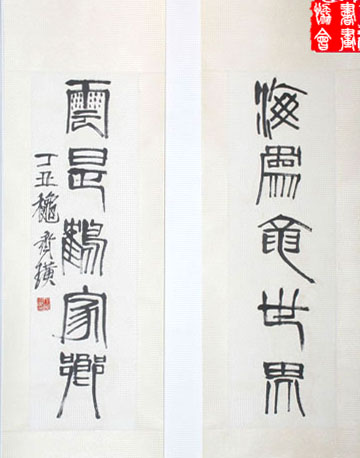 海為龍世界
雲是鶴家鄉
丁丑龝齊璜
書畫
協會